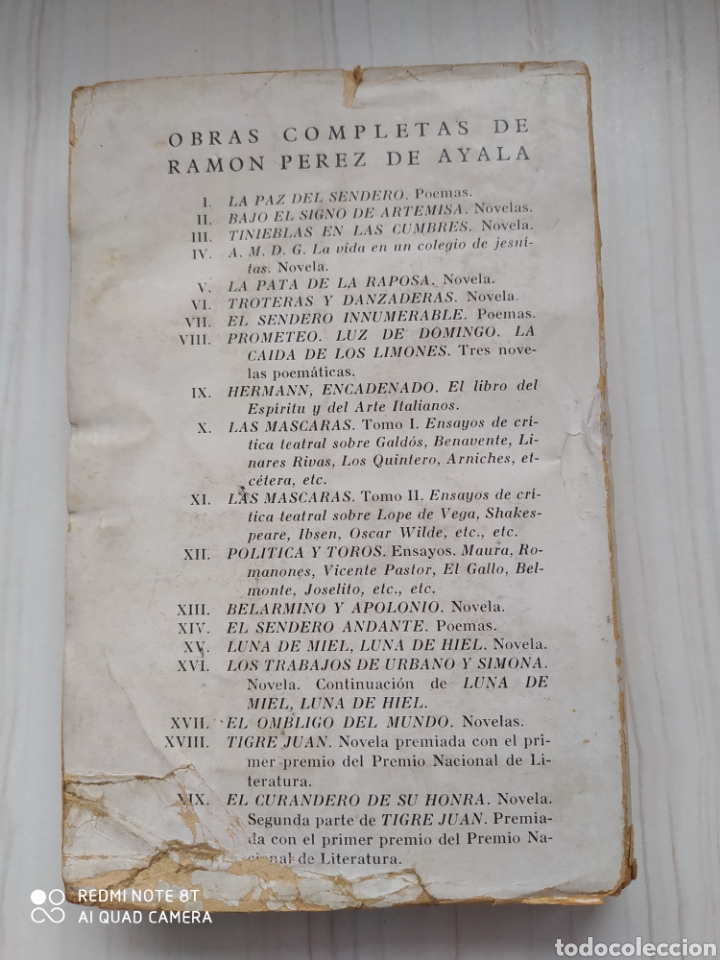 OBRAS COMPLETAS DE
RAMON PEREZ DE AYALA
I. LA PAZ DEL SENDERO. Poemas.
II. BAJO EL SIGNO DE ARTEMISA. Novelas.
III. TINIEBLAS EN LAS CUMBRES. Novela.
IV. A. M. D. G. La vida en un colegio de jesuí-
tas. Novela.
V. LA PATA DE LA RAPOSA. Novela.
VI. TROTERAS Y DANZADERAS. Novela.
VII. EL SENDERO INNUMERABLE. Poemas.
VIII. PROMETEO. LUZ DE DOMINGO. LA
CAIDA DE LOS LIMONES. Tres nove-
las poemáticas.
IX. HERMANN, ENCADENADO. El libro del
Espíritu y del Arte Italianos.
X. LAS MASCARAS. Tomo I. Ensayos de crí-
tica teatral sobre Galdós, Benavente, Li-
nares Rivas, Los Quintero, Arniches, et-
cétera, etc.
XI. LAS MASCARAS. Tomo II. Ensayos de crí-
tica teatral sobre Lope de Vega, Shakes-
peare, Ibsen, Oscar Wilde, etc., etc.
XII. POLITICA Y TOROS. Ensayos. Maura, Ro-
manones, Vicente Pastor, El Gallo, Bel-
monte, Joselito, etc., etc.
XIII. BELARMINO Y APOLONIO. Novela.
XIV. EL SENDERO ANDANTE. Poemas.
XV. LUNA DE MIEL, LUNA DE HIEL. Novela.
XVI. LOS TRABAJOS DE URBANO Y SIMONA.
Novela. Continuación de LUNA DE
MIEL, LUNA DE HIEL.
XVII. EL OMBLIGO DEL MUNDO. Novelas.
XVIII. TIGRE JUAN. Novela premiada con el pri-
mer premio del Premio Nacional de Li-
teratura.
XIX. EL CURANDERO DE SU HONRA. Novela.
Segunda parte de TIGRE JUAN. Premia-
da con el primer premio del Premio Na-
cional de Literatura.
REDMI NOTE 8T
AI QUAD CAMERA
todocoleccion